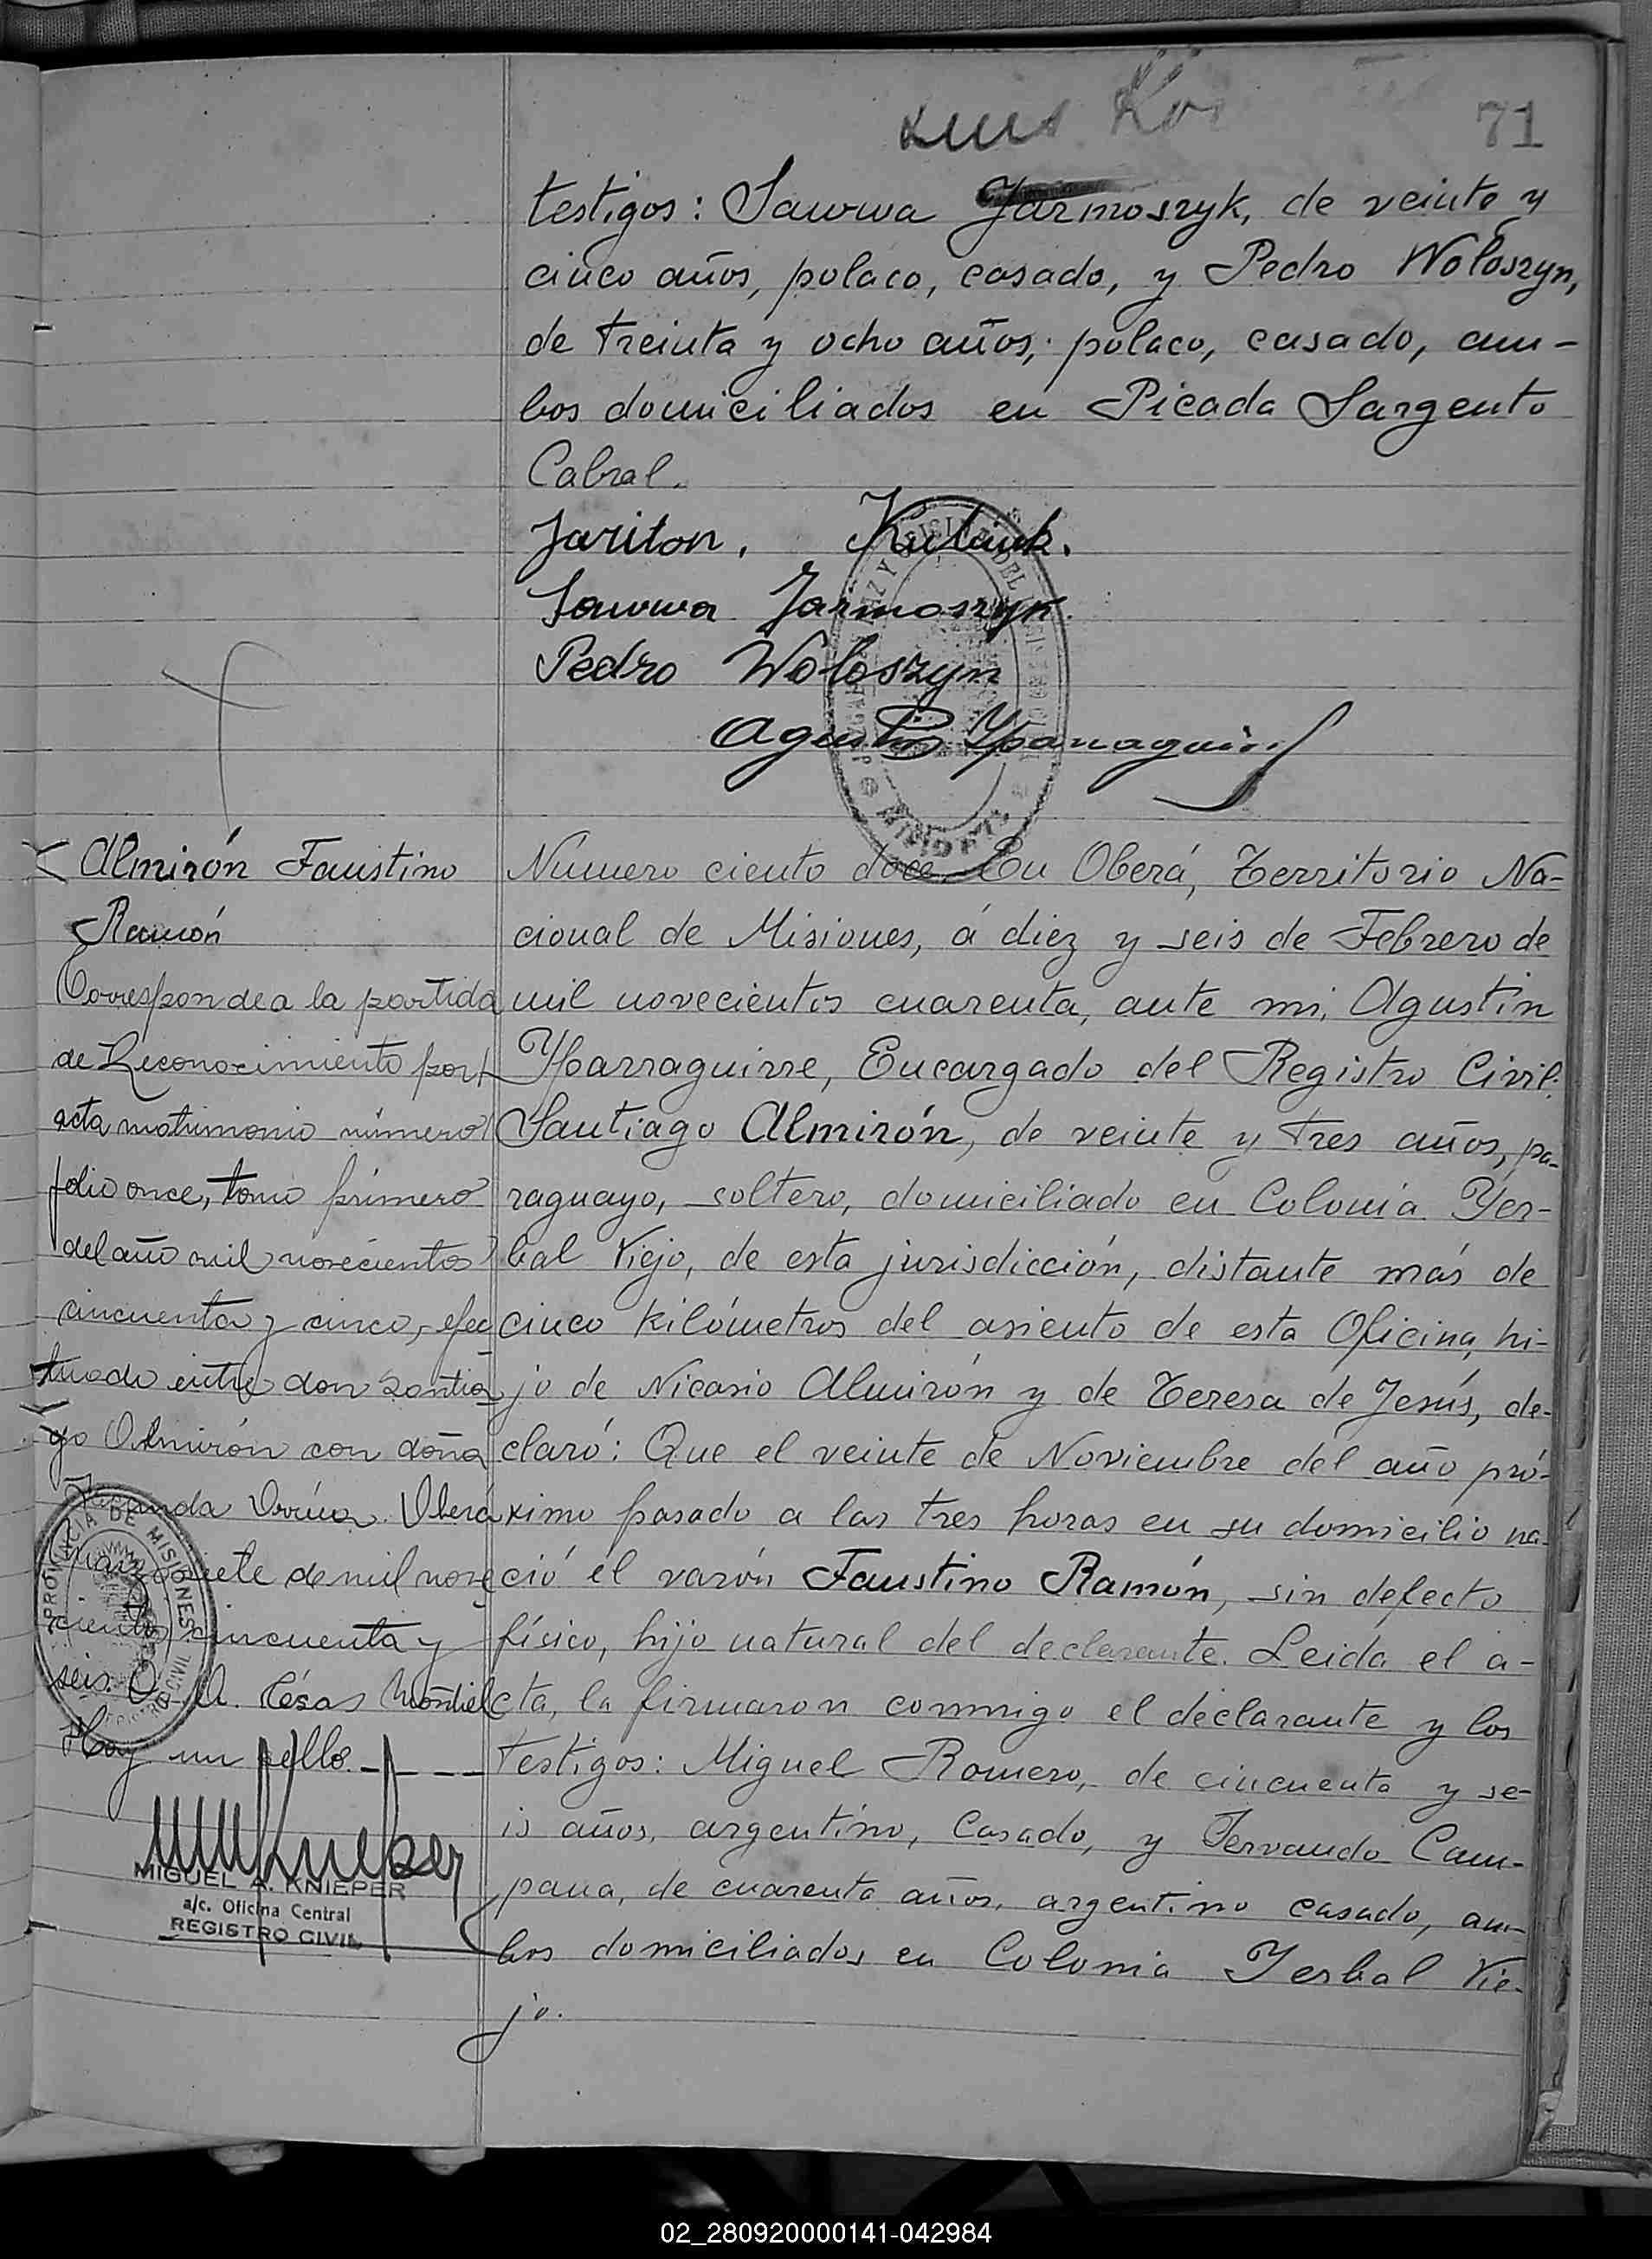 Luis Ko
71
testigos: Sawwa Jarmoszyk, de veinte y
cinco años, polaco, casado, y Pedro Woloszyn,
de treinta y ocho años, polaco, casado, am-
bos domiciliados en Picada Sargento
Cabral.
Jariton. Kulauk.
Sawwa Jarmoszyk.
Pedro Woloszyn
Agustin Ybarraguirre
Almirón Faustino
Ramón
Corresponde a la partida
de Reconocimiento por
acta matrimonio número
folio once, tomo primero
del año mil novecientos
cincuenta y cinco, efec
tuado entre don Santia
go Almirón con doña
Oberá
siete de mil nove
cientos cincuenta y
seis. César Montiel
Hay un sello.
PROVINCIA DE MISIONES
REGISTRO CIVIL
MIGUEL A. KNIEPER
a/c. Oficina Central
REGISTRO CIVIL
Número ciento doce. En Oberá, Territorio Na-
cional de Misiones, á diez y seis de Febrero de
mil novecientos cuarenta, ante mi, Agustin
Ybarraguirre, Encargado del Registro Civil.
Santiago Almirón, de veinte y tres años, pa-
raguayo, soltero, domiciliado en Colonia Yer-
bal Viejo, de esta jurisdicción, distante más de
cinco kilómetros del asiento de esta Oficina, hi-
jo de Nicasio Almirón y de Teresa de Jesús, de-
claró: Que el veinte de Noviembre del año pró-
ximo pasado a las tres horas en su domicilio na-
ció el varón Faustino Ramón, sin defecto
físico, hijo natural del declarante. Leida el a-
cta, la firmaron conmigo el declarante y los
testigos: Miguel Romero, de cincuenta y se-
is años, argentino, Casado, y Servando Cam-
pana, de cuarenta años, argentino casado, am-
bos domiciliados en Colonia Yerbal Vie-
jo.
02_280920000141-042984